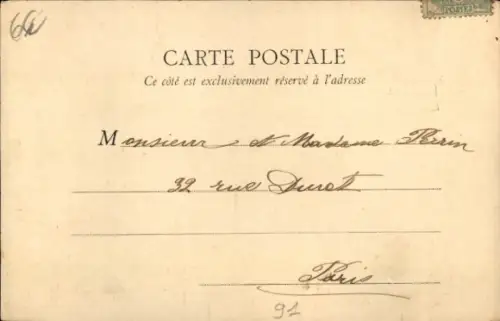 64
CARTE POSTALE
Ce côté est exclusivement réservé à l'adresse
Monsieur et Madame Perrin
32 rue Duret
Paris
91